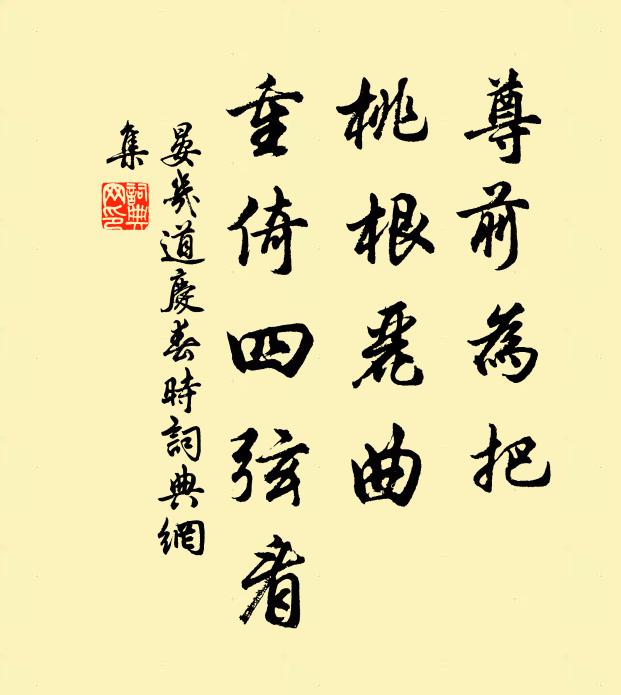 尊前為把
桃根麗曲
重倚四弦看
晏幾道慶春時詞典網
集
詞典
网印